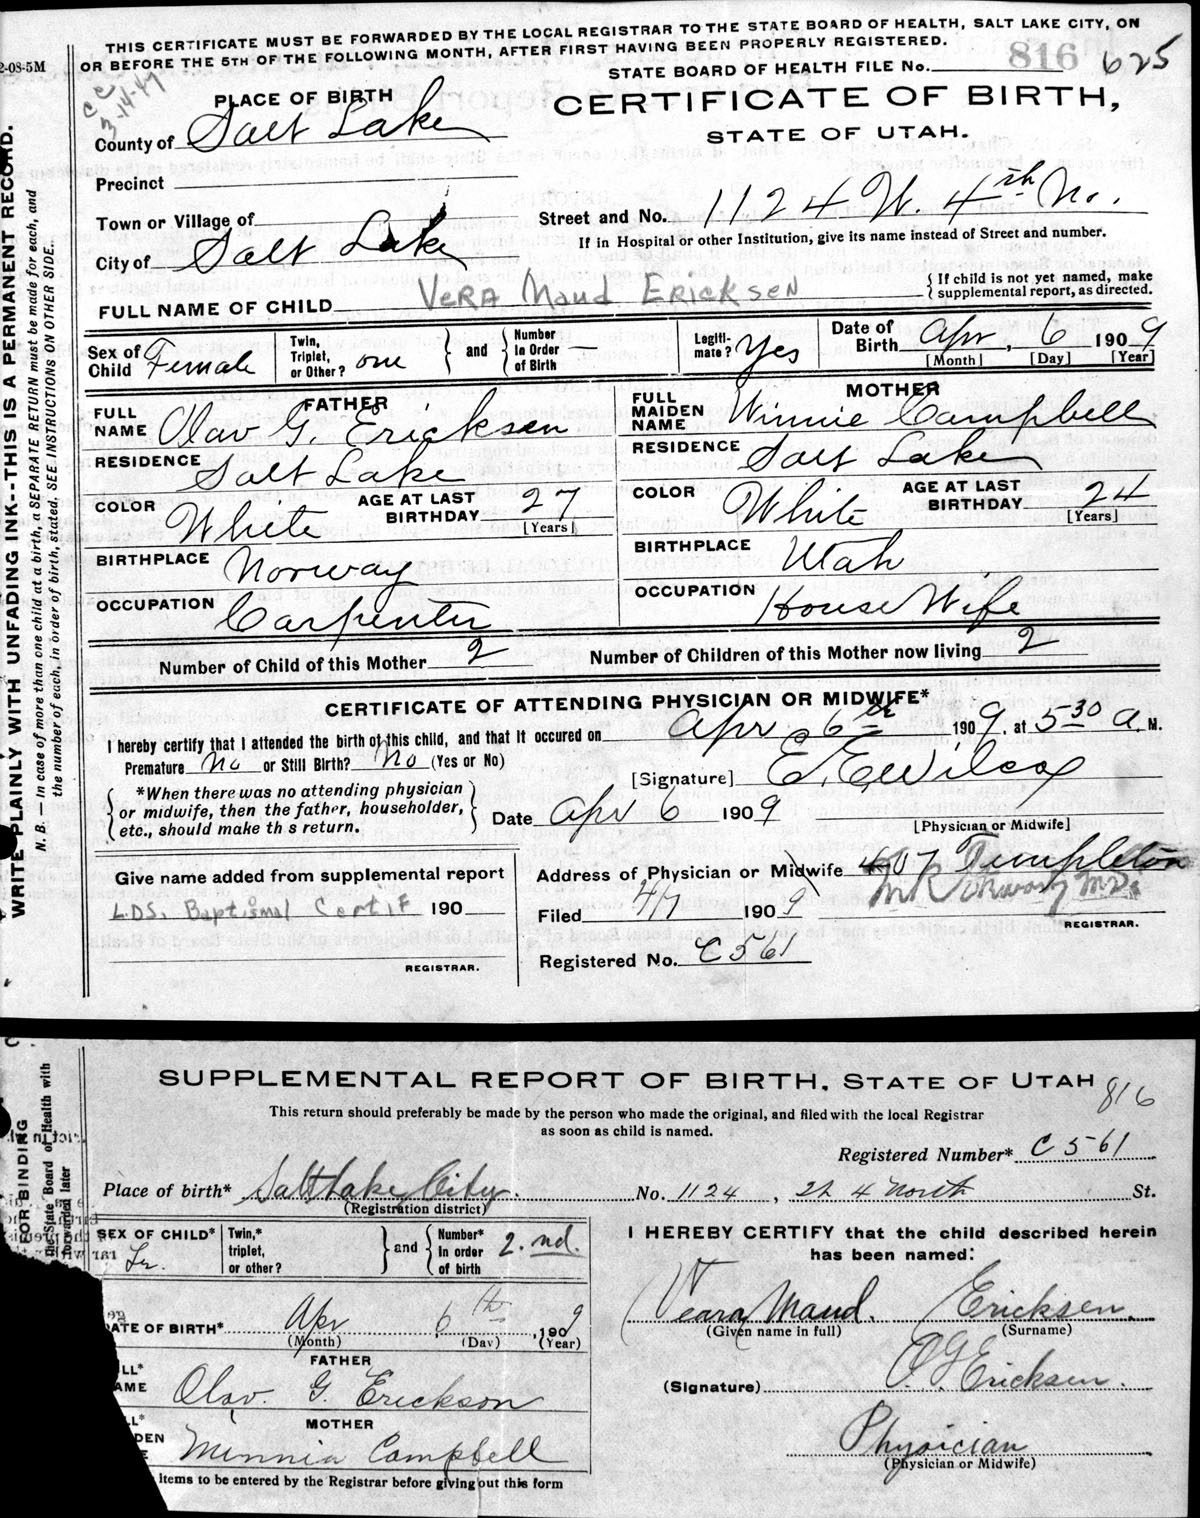 THIS CERTIFICATE MUST BE FORWARDED BY THE LOCAL REGISTRAR TO THE STATE BOARD OF HEALTH, SALT LAKE CITY, ON
OR BEFORE THE 5TH OF THE FOLLOWING MONTH, AFTER FIRST HAVING BEEN PROPERLY REGISTERED.
2-08-5M
STATE BOARD OF HEALTH FILE No. 816 625
3-14-47
PLACE OF BIRTH
CERTIFICATE OF BIRTH,
STATE OF UTAH.
County of Salt Lake
Precinct
Town or Village of
Street and No. 1124 W. 4th No.
City of Salt Lake
If in Hospital or other Institution, give its name instead of Street and number.
FULL NAME OF CHILD VERA Maud ERICKSEN
{ If child is not yet named, make supplemental report, as directed.
Sex of Child Female
Twin, Triplet, or Other? one } and { Number in Order of Birth —
Legiti-mate? Yes
Date of Birth Apr, 6 1909
[Month] [Day] [Year]
FATHER
FULL NAME Olav G. Ericksen
RESIDENCE Salt Lake
COLOR White AGE AT LAST BIRTHDAY 27 [Years]
BIRTHPLACE Norway
OCCUPATION Carpenter
MOTHER
FULL MAIDEN NAME Winnie Campbell
RESIDENCE Salt Lake
COLOR White AGE AT LAST BIRTHDAY 24 [Years]
BIRTHPLACE Utah
OCCUPATION House Wife
Number of Child of this Mother 2 Number of Children of this Mother now living 2
CERTIFICATE OF ATTENDING PHYSICIAN OR MIDWIFE*
I hereby certify that I attended the birth of this child, and that it occured on Apr 6th 1909, at 5 30 A. M.
Premature No or Still Birth? No (Yes or No)
[Signature] E. E. Wilcox
{ *When there was no attending physician or midwife, then the father, householder, etc., should make th s return. }
Date Apr 6 1909
[Physician or Midwife]
Give name added from supplemental report
L.D.S. Baptismal Certif 190
REGISTRAR.
Address of Physician or Midwife 407 Templeton
Filed 4/7 1909
REGISTRAR.
Registered No. C561
WRITE PLAINLY WITH UNFADING INK--THIS IS A PERMANENT RECORD.
N. B. — In case of more than one child at a birth, a SEPARATE RETURN must be made for each, and
the number of each, in order of birth, stated. SEE INSTRUCTIONS ON OTHER SIDE.
SUPPLEMENTAL REPORT OF BIRTH, STATE OF UTAH
816
This return should preferably be made by the person who made the original, and filed with the local Registrar
as soon as child is named.
Registered Number* C561
Place of birth* Salt Lake City. No. 1124, W 4 North St.
(Registration district)
SEX OF CHILD*
Twin,* triplet, or other? } and { Number* in order of birth 2.nd.
DATE OF BIRTH* Apr 6th, 1909
(Month) (Day) (Year)
FATHER
Olav. G. Erickson
MOTHER
Minnia Campbell
items to be entered by the Registrar before giving out this form
I HEREBY CERTIFY that the child described herein
has been named:
Veara Maud. Ericksen.
(Given name in full) (Surname)
(Signature) O. G. Ericksen.
Physician
(Physician or Midwife)
FOR BINDING
the State Board of Health with
forwarded later